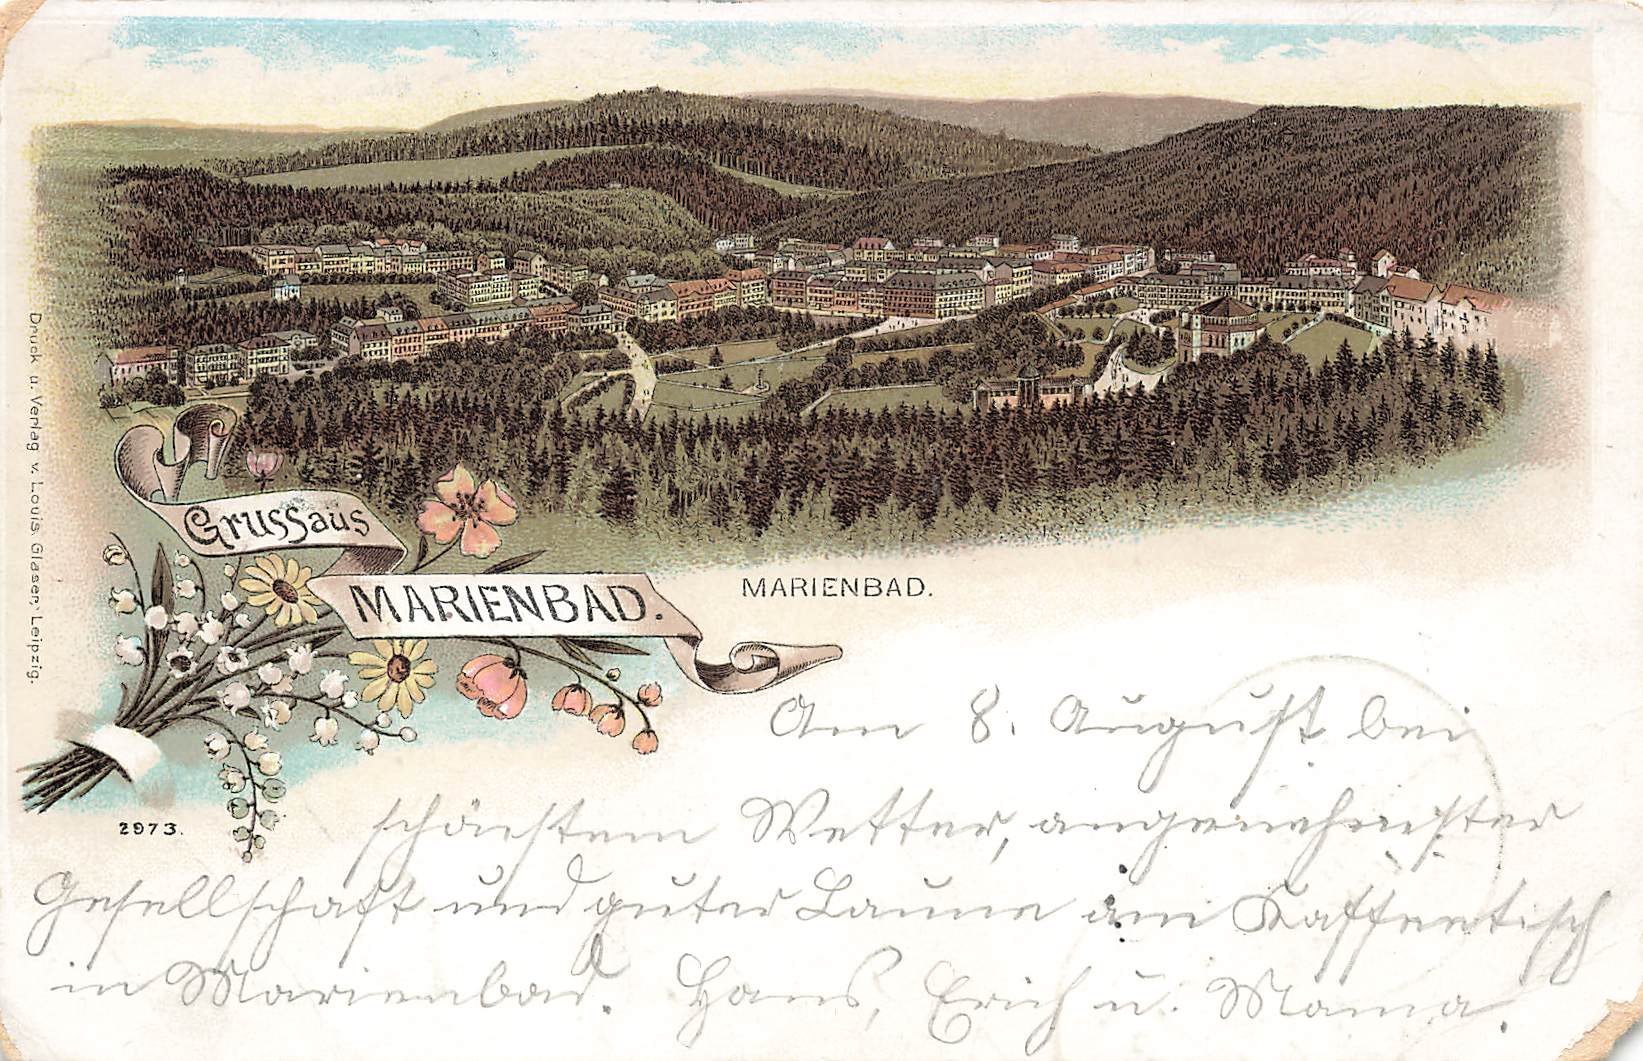 Gruss aus
MARIENBAD.
MARIENBAD.
Druck u. Verlag v. Louis Glaser, Leipzig.
2973.
Am 8. August bei
schönstem Wetter, angenehmster
Gesellschaft und guter Laune am Kaffeetisch
in Marienbad. Hans, Erich u. Mama.